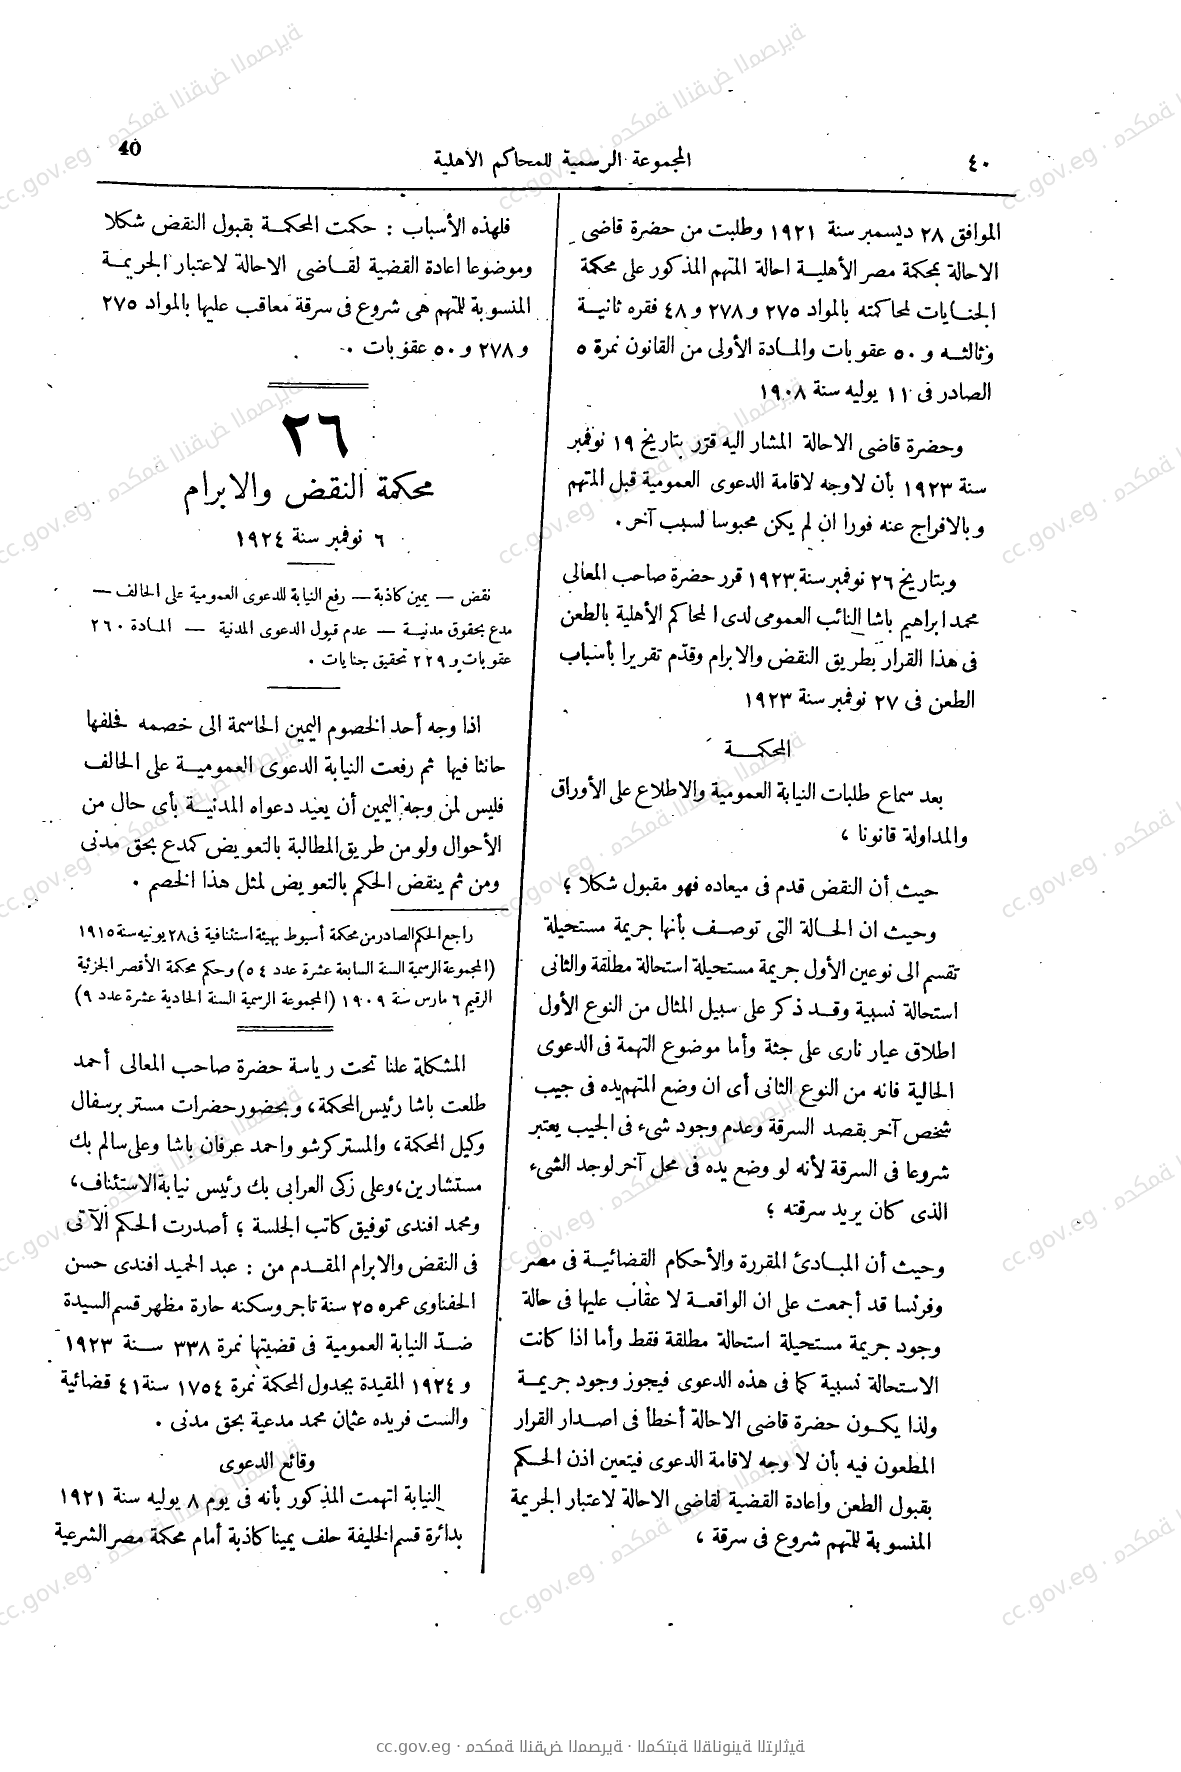 ٤٠
المجموعة الرسمية للمحاكم الأهلية
40
الموافق ٢٨ ديسمبر سنة ١٩٢١ وطلبت من حضرة قاضى
الاحالة بمحكمة مصر الأهليـة احالة المتهم المذكور على محكمة
الجنـايات لمحاكمته بالمواد ٢٧٥ و ٢٧٨ و ٤٨ فقره ثانيـة
وثالثـه و ٥٠ عقوبات والمـادة الأولى من القانون نمرة ٥
الصادر فى ١١ يوليه سنة ١٩٠٨
وحضرة قاضى الاحالة المشار اليه قرّر بتاريخ ١٩ نوفمبر
سنة ١٩٢٣ بأن لاوجه لاقامة الدعوى العمومية قبل المتهم
وبالافراج عنه فورا ان لم يكن محبوسا لسبب آخر .
وبتاريخ ٢٦ نوفمبر سنة ١٩٢٣ قرر حضرة صاحب المعالى
محمد ابراهيم باشا النائب العمومى لدى المحاكم الأهلية بالطعن
فى هذا القرار بطريق النقض والابرام وقدّم تقريرا بأسباب
الطعن فى ٢٧ نوفمبر سنة ١٩٢٣
المحكمـــة
بعد سماع طلبات النيابة العمومية والاطلاع على الأوراق
والمداولة قانونا ،
حيث أن النقض قدم فى ميعاده فهو مقبول شكلا ؛
وحيث ان الحـالة التى توصـف بأنها جريمة مستحيلة
تقسم الى نوعين الأول جريمة مستحيلة استحالة مطلقة والثانى
استحالة نسبية وقـد ذكر على سبيل المثال من النوع الأول
اطلاق عيار نارى على جثة وأما موضوع التهمة فى الدعوى
الحالية فانه من النوع الثانى أى ان وضع المتهم يده فى جيب
شخص آخر بقصد السرقة وعدم وجود شىء فى الجيب يعتبر
شروعا فى السرقة لأنه لو وضع يده فى محل آخر لوجد الشىء
الذى كان يريد سرقته ؛
وحيث أن المبـادئ المقررة والأحكام القضائيـة فى مصر
وفرنسا قد أجمعت على ان الواقعـة لا عقاب عليها فى حالة
وجود جريمة مستحيلة استحالة مطلقة فقط وأما اذا كانت
الاستحالة نسبية كما فى هذه الدعوى فيجوز وجود جريمـة
ولذا يكـون حضرة قاضى الاحالة أخطأ فى اصـدار القرار
المطعون فيه بأن لا وجه لاقامة الدعوى فيتعين اذن الحـكم
بقبول الطعن واعادة القضية لقاضى الاحالة لاعتبار الجريمة
المنسوبة للمتهم شروع فى سرقة ،
فلهذه الأسباب : حكمت المحكمـة بقبول النقض شكلا
وموضوعا اعادة القضية لقـاضى الاحالة لاعتبار الجريمـة
المنسوبة للمتهم هى شروع فى سرقة معاقب عليها بالمواد ٢٧٥
و ٢٧٨ و ٥٠ عقوبات .
٢٦
محكمة النقض والابرام
٦ نوفمبر سنة ١٩٢٤
نقض — يمين كاذبة — رفع النيابة للدعوى العمومية على الحالف —
مدع بحقوق مدنيـة — عدم قبول الدعوى المدنية — المـادة ٢٦٠
عقوبات و ٢٢٩ تحقيق جنايات .
اذا وجه أحد الخصوم اليمين الحاسمة الى خصمه فحلفها
حانثا فيها ثم رفعت النيابة الدعوى العموميـة على الحالف
فليس لمن وجه اليمين أن يعيد دعواه المدنيـة بأى حال من
الأحوال ولو من طريق المطالبة بالتعويض كمدع بحق مدنى
ومن ثم ينقض الحكم بالتعويض لمثل هذا الخصم .
راجع الحكم الصادر من محكمة أسيوط بهيئة استئنافية فى ٢٨ يونيه سنة ١٩١٥
(المجموعة الرسمية السنة السابعة عشرة عدد ٥٤) وحكم محكمة الأقصر الجزئية
الرقيم ٦ مارس سنة ١٩٠٩ (المجموعة الرسمية السنة الحادية عشرة عدد ٩)
المشكلة علنا تحت رياسة حضرة صاحب المعالى أحمد
طلعت باشا رئيس المحكمة، وبحضور حضرات مستر برسفال
وكيل المحكمة، والمستر كرشو واحمد عرفان باشا وعلى سالم بك
مستشارين، وعلى زكى العرابى بك رئيس نيابة الاستئناف،
ومحمد افندى توفيق كاتب الجلسة ؛ أصدرت الحكم الآتى
فى النقض والابرام المقـدم من : عبد الحميد افندى حسن
الحفناوى عمره ٢٥ سنة تاجر وسكنه حارة مظهر قسم السيدة
ضـدّ النيابة العمومية فى قضيتها نمرة ٣٣٨ سـنة ١٩٢٣
و ١٩٢٤ المقيدة بجدول المحكمة نمرة ١٧٥٤ سنة ٤١ قضائية
والست فريده عثمان محمد مدعية بحق مدنى .
وقائع الدعوى
النيابة اتهمت المذكور بأنه فى يوم ٨ يوليه سنة ١٩٢١
بدائرة قسم الخليفة حلف يمينا كاذبة أمام محكمة مصر الشرعية
cc.gov.eg · محكمة النقض المصرية · المكتبة القانونية التراثية